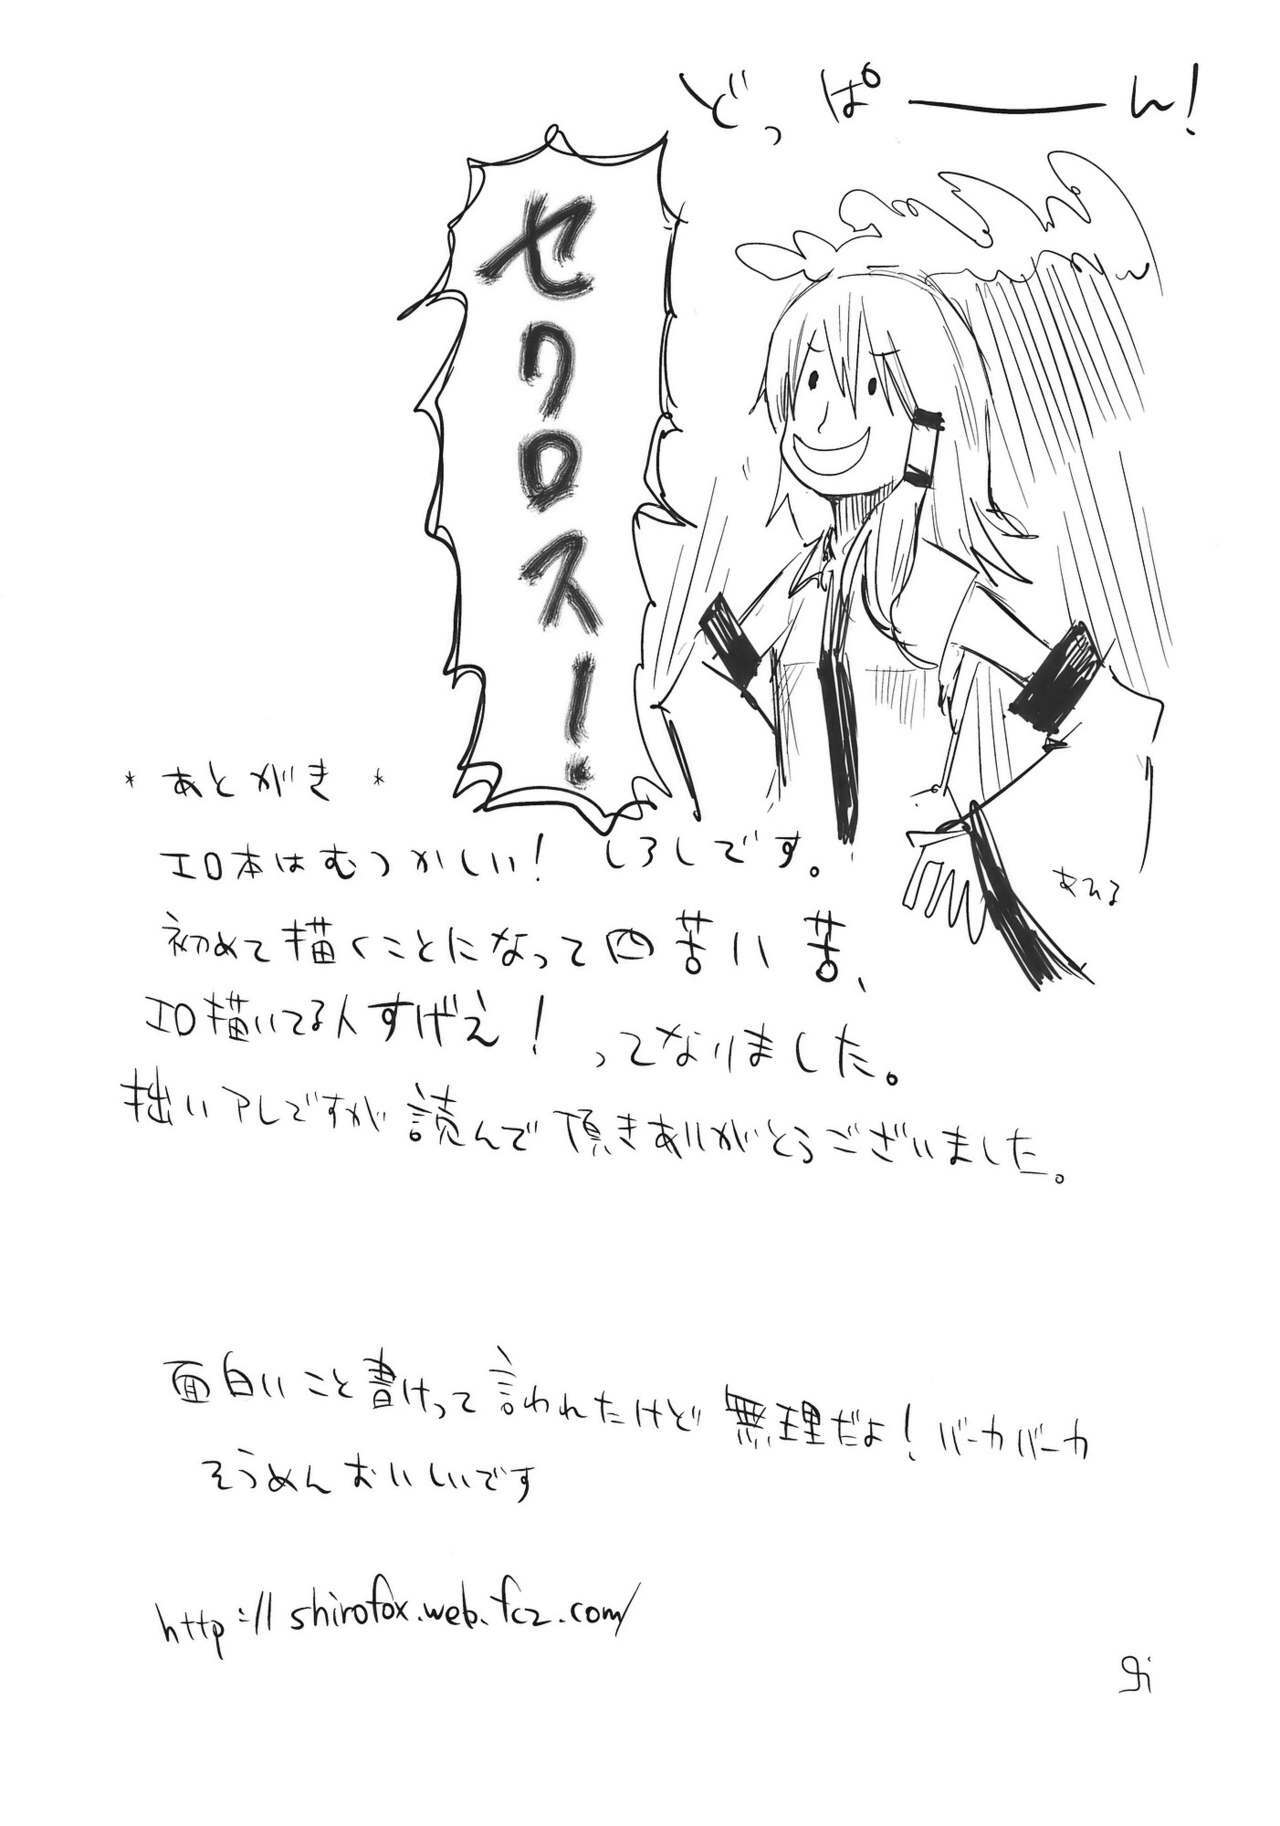 どっぱーーーん!
セクロスー!
* あとがき *
エロ本はむつかしい! しろしです。
初めて描くことになって四苦八苦、
エロ描いてる人すげえ! ってなりました。
拙いアレですが読んで頂きありがとうございました。
面白いこと書けって言われたけど無理だよ! バーカバーカ
そうめんおいしいです
http://shirofox.web.fc2.com/